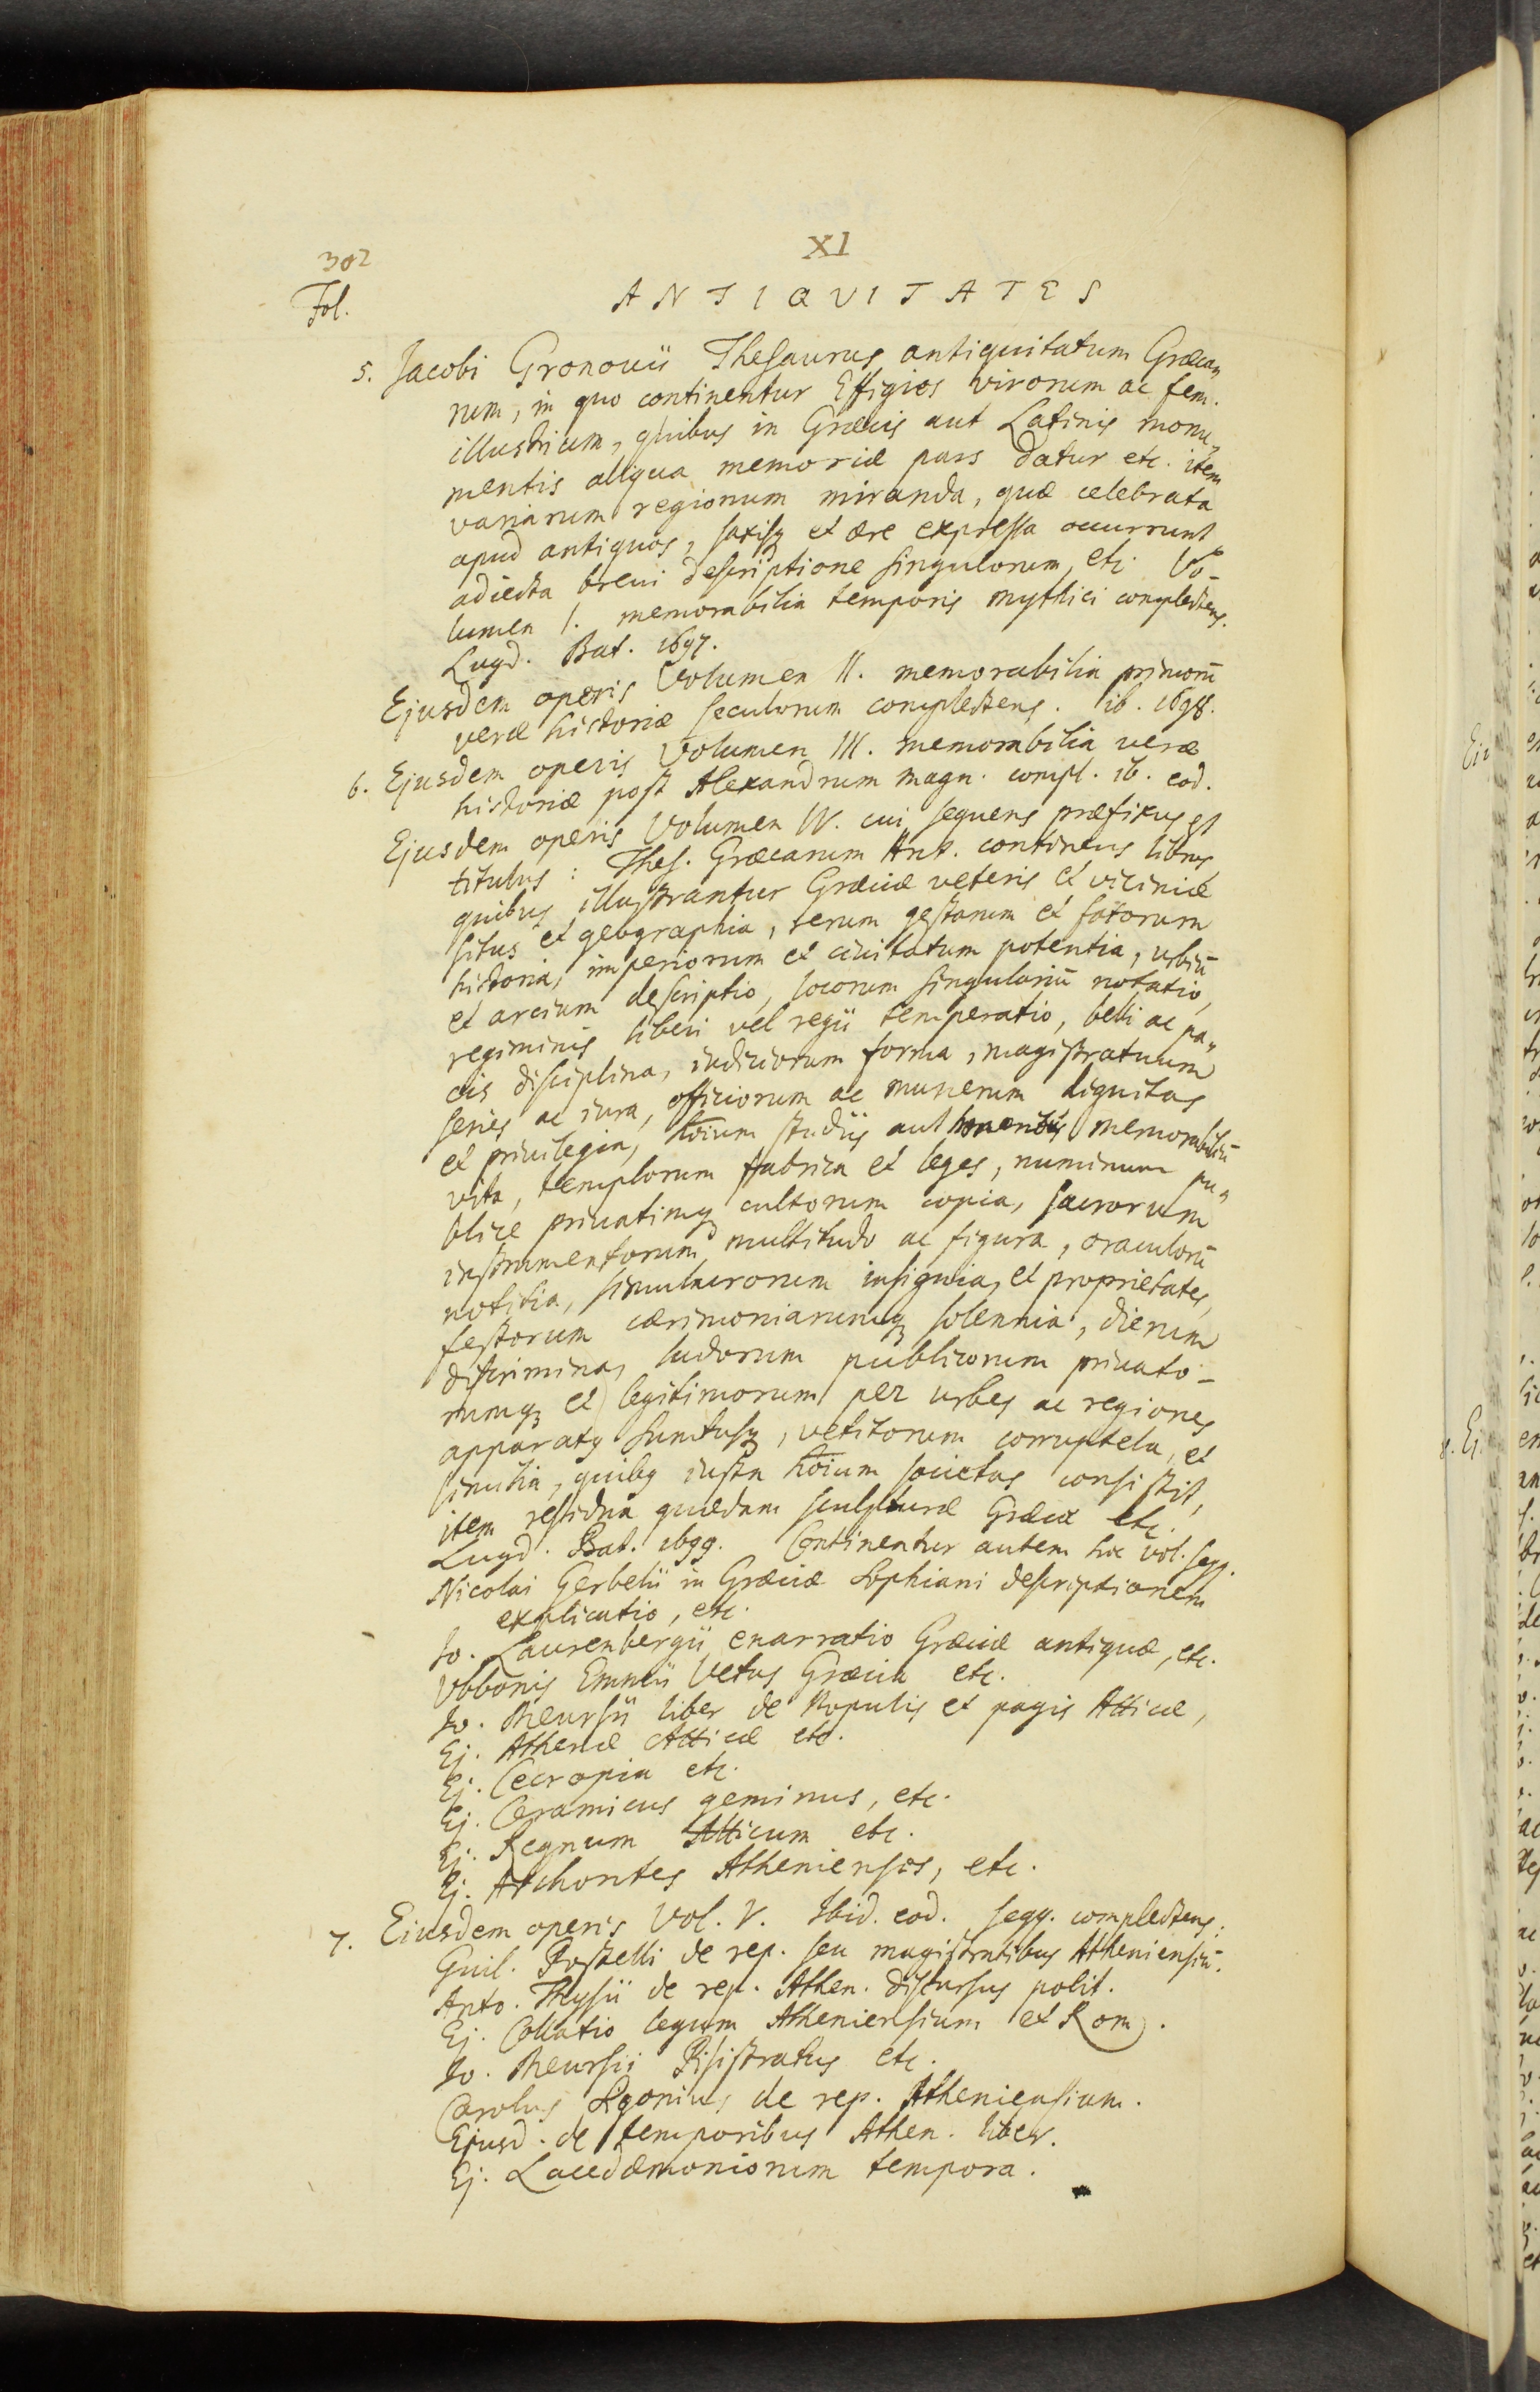 XI
302
ANTIQVITATES
Fol.
5. Jacobi Gronovii Thesaurus antiquitatum Græca„
rum, in quo continentur Effigies virorum ac fem.
illustrium, quibus in Græcis aut Latinis monu„
mentis aliqua memoriæ pars datur etc. item
variarum regionum miranda, quæ celebrata
apud antiquos, saxisq et ære expressa occurrunt
adiecta brevi descriptione singulorum, etc. Vo-
lumen I. memorabilia temporis mythici complectens.
Lugd. Bat. 1697.
Ejusdem operis Volumen II. memorabilia primorū
veræ historiæ seculorum complectens. ib. 1698.
6. Ejusdem operis Volumen III. memorabilia veræ
historiæ post Alexandrum magn. compl. ib. eod.
Ejusdem operis Volumen IV. cui sequens præfixus est
titulus: Thes. Græcarum Ant. continens libros,
quibus illustrantur Græciæ veteris et viciniæ
situs et geographia, rerum gestarum et fatorum
historia, imperiorum et civitatum potentia, urbiū
et arcium descriptio, locorum singulariū notatio,
regiminis liberi vel regii temperatio, belli ac pa„
cis disciplina, iudiciorum forma, magistratuum
series ac iura, officiorum ac munerum dignitas
et privilegia, hōium studiis aut moribus memorabiliū
vita, templorum fabrica et leges, numinum pu„
blice privatimq cultorum copia, sacrorum
instrumentorum multitudo ac figura, oraculorū
notitia, simulacrorum insignia, et proprietates,
festorum cærimoniarumq solennia, dierum
discrimina, ludorum publicorum privato-
rumq et legitimorum per urbes ac regiones
apparatq sumtusq, vetitorum corruptela, et
similia, quibq iusta hōium societas consistit,
item residua quædam sculpturæ Græcæ etc.
Lugd. Bat. 1699. Continentur autem hoc vol. seqq.
Nicolai Gerbelii in Græciæ Sophiani descriptionem
explicatio, etc.
Jo. Laurenbergii enarratio Græciæ antiquæ, etc.
Vbbonis Emmii Vetus Græcia etc.
Jo. Meursii liber de Populis et pagis Atticæ,
Ej. Athenæ Atticæ etc.
Ej. Cecropia etc.
Ej. Ceramicus geminus, etc.
Ej. Regnum Atticum etc.
Ej. Archontes Athenienses, etc.
7. Eiusdem operis Vol. V. Ibid. eod. seqq. complectens:
Guil. Postelli de rep. seu magistratibus Atheniensiū.
Anto. Thysii de rep. Athen. discursus polit.
Ej. Collatio legum Atheniensium et Rom.
Jo. Meursii Pisistratus etc.
Carolus Sigonius de rep. Atheniensium.
Ejusd. de temporibus Athen. liber.
Ej. Lacedæmoniorum tempora.